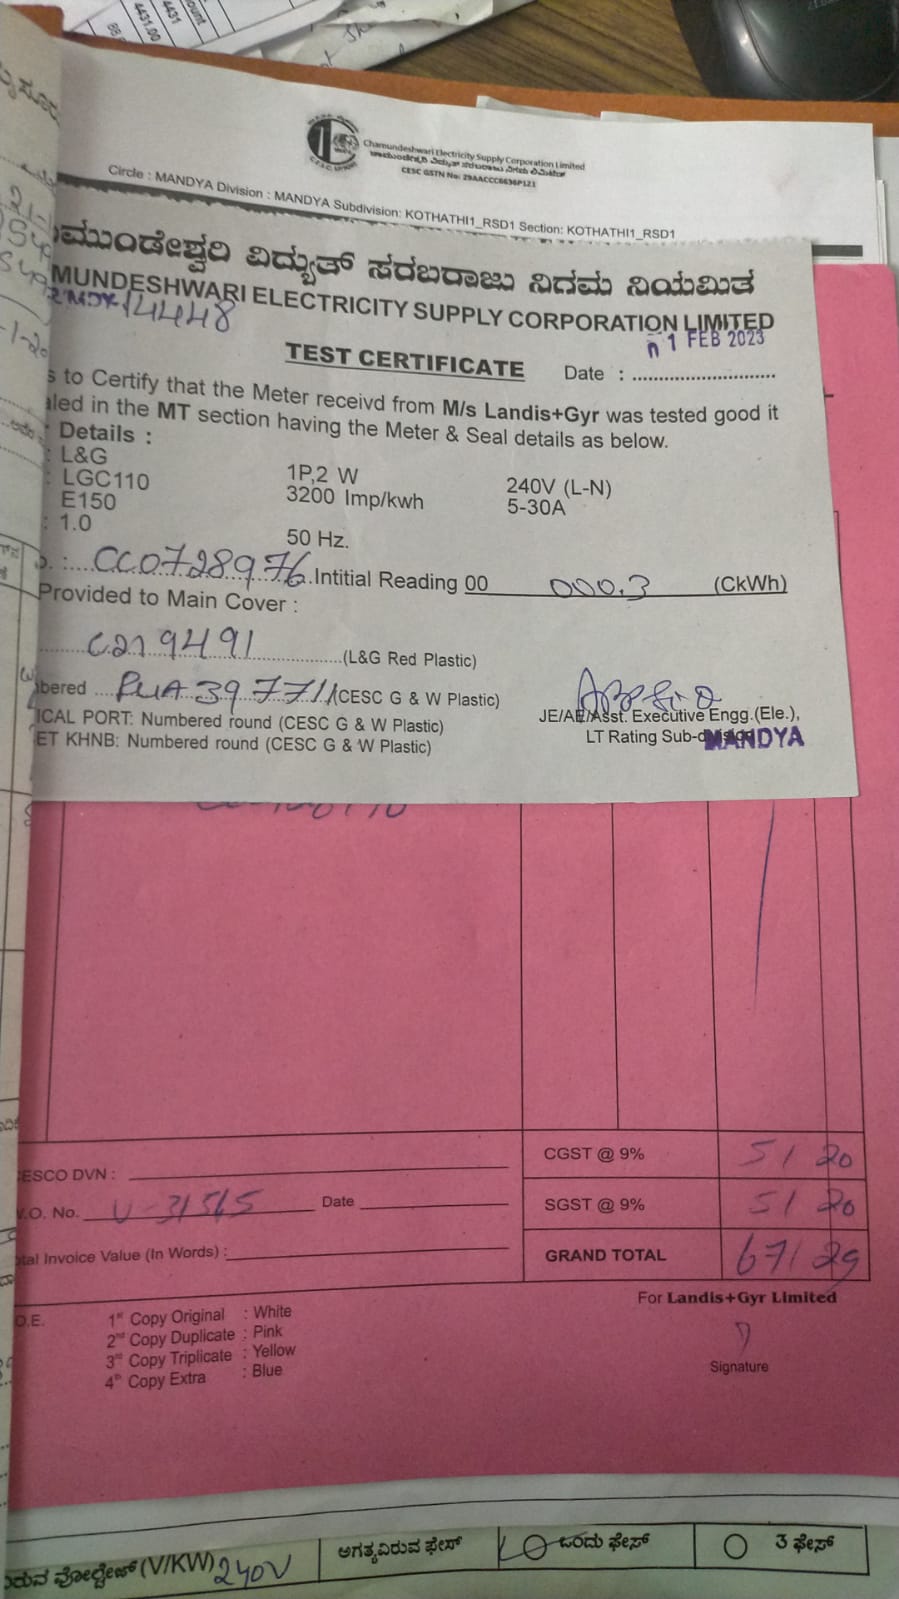 ount
4431
4431.00
Chamundeshwari Electricity Supply Corporation Limited
CESC GSTN No: 29AACCC6636P1Z1
Circle : MANDYA Division : MANDYA Subdivision: KOTHATHI1_RSD1 Section: KOTHATHI1_RSD1
ಮುಂಡೇಶ್ವರಿ ವಿದ್ಯುತ್ ಸರಬರಾಜು ನಿಗಮ ನಿಯಮಿತ
MUNDESHWARI ELECTRICITY SUPPLY CORPORATION LIMITED
14448
1 FEB 2023
TEST CERTIFICATE Date :
s to Certify that the Meter receivd from M/s Landis+Gyr was tested good it
aled in the MT section having the Meter & Seal details as below.
Details :
: L&G 1P,2 W 240V (L-N)
: LGC110 3200 Imp/kwh 5-30A
E150
: 1.0 50 Hz.
CC0728976 Intitial Reading 00 000.3 (CkWh)
Provided to Main Cover :
C219491 (L&G Red Plastic)
bered (CESC G & W Plastic)
ICAL PORT: Numbered round (CESC G & W Plastic)
ET KHNB: Numbered round (CESC G & W Plastic)
JE/AE/Asst. Executive Engg.(Ele.),
LT Rating Sub-division
MANDYA
ESCO DVN : CGST @ 9% 51 20
.O. No. Date SGST @ 9% 51 20
tal Invoice Value (In Words) : GRAND TOTAL 671 29
For Landis+Gyr Limited
O.E. 1st Copy Original : White
2nd Copy Duplicate : Pink
3rd Copy Triplicate : Yellow
4th Copy Extra : Blue
Signature
ರುವ ವೋಲ್ಟೇಜ್ (V/KW) 240V ಅಗತ್ಯವಿರುವ ಫೇಸ್ ಒಂದು ಫೇಸ್ 3 ಫೇಸ್